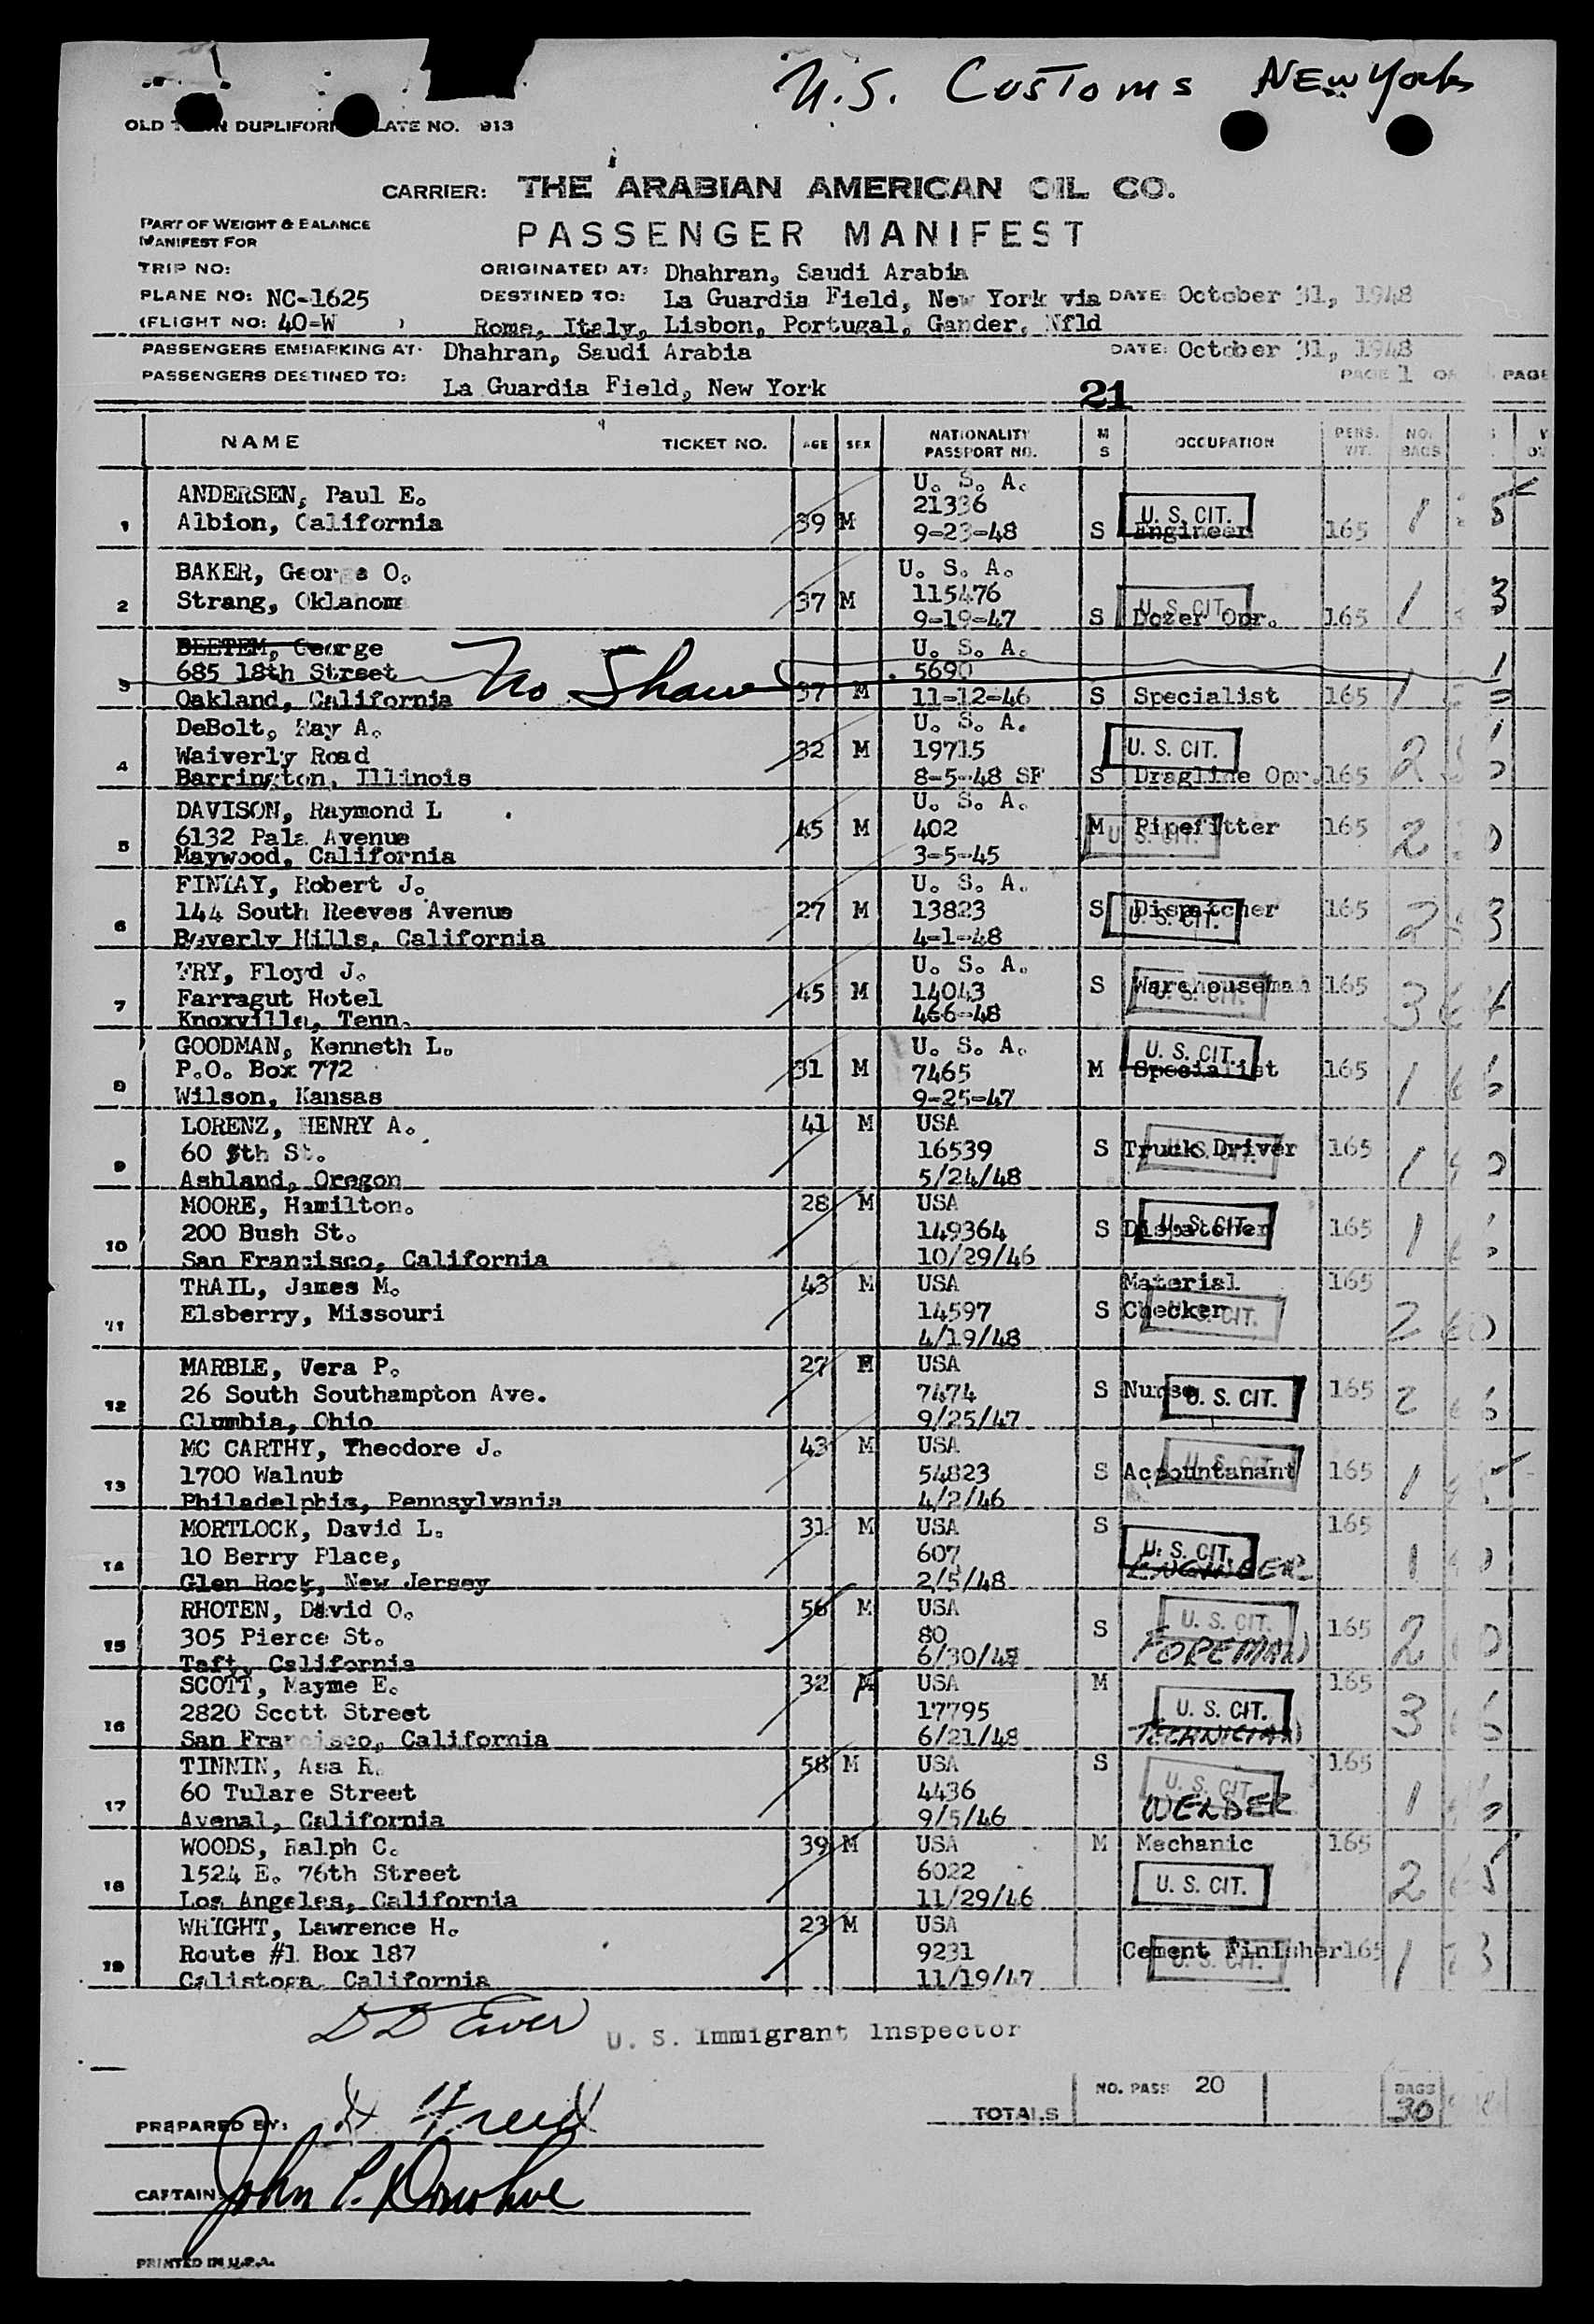 U.S. Customs New York
OLD TOWN DUPLIFORM PLATE NO. 913
CARRIER: THE ARABIAN AMERICAN OIL CO.
PART OF WEIGHT & BALANCE
MANIFEST FOR
PASSENGER MANIFEST
TRIP NO: ORIGINATED AT: Dhahran, Saudi Arabia
PLANE NO: NC-1625 DESTINED TO: La Guardia Field, New York via DATE: October 31, 1948
(FLIGHT NO: 40-W ) Rome, Italy, Lisbon, Portugal, Gander, Nfld
PASSENGERS EMBARKING AT: Dhahran, Saudi Arabia DATE: October 31, 1948
PASSENGERS DESTINED TO: La Guardia Field, New York PAGE 1 OF PAGE
21
NAME TICKET NO. AGE SEX NATIONALITY PASSPORT NO. M S OCCUPATION PERS. WT. NO. BAGS
ANDERSEN, Paul E. U. S. A.
21336 U. S. CIT.
1 Albion, California 39 M 9-23-48 S Engineer 165 1
BAKER, George O. U. S. A.
115476 U. S. CIT.
2 Strang, Oklahom 37 M 9-19-47 S Dozer Opr. 165 1 3
BEETEM, George U. S. A.
685 18th Street No Show 5690
3 Oakland, California 37 M 11-12-46 S Specialist 165 1
DeBolt, Ray A. U. S. A.
Waiverly Road 32 M 19715 U. S. CIT.
4 Barrington, Illinois 8-5-48 SF S Dragline Opr. 165 2
DAVISON, Raymond L U. S. A.
6132 Pala Avenue 45 M 402 M Pipefitter 165 2
5 Maywood, California 3-5-45 U. S. CIT.
FINLAY, Robert J. U. S. A.
144 South Reeves Avenue 27 M 13823 S Dispatcher 165 2 3
6 Beverly Hills, California 4-1-48 U. S. CIT.
FRY, Floyd J. U. S. A.
Farragut Hotel 45 M 14043 S Warehouseman 165 3
7 Knoxville, Tenn. 466-48 U. S. CIT.
GOODMAN, Kenneth L. U. S. A. U. S. CIT.
P.O. Box 772 31 M 7465 M Specialist 165 1
8 Wilson, Kansas 9-25-47
LORENZ, HENRY A. 41 M USA
60 8th St. 16539 S Truck Driver 165 1
9 Ashland, Oregon 5/24/48 U. S. CIT.
MOORE, Hamilton. 28 M USA
200 Bush St. 149364 S Dispatcher U. S. CIT. 165 1
10 San Francisco, California 10/29/46
TRAIL, James M. 43 M USA Material 165
Elsberry, Missouri 14597 S Checker U. S. CIT. 2
11 4/19/48
MARBLE, Vera P. 27 F USA
26 South Southampton Ave. 7474 S Nurse U. S. CIT. 165 2
12 Clumbia, Ohio 9/25/47
MC CARTHY, Theodore J. 43 M USA U. S. CIT.
1700 Walnut 54823 S Accountanant 165 1
13 Philadelphia, Pennsylvania 4/2/46
MORTLOCK, David L. 31 M USA S 165
10 Berry Place, 607 U. S. CIT. ENGINEER 1
14 Glen Rock, New Jersey 2/5/48
RHOTEN, David O. 56 M USA U. S. CIT.
305 Pierce St. 80 S FOREMAN 165 2
15 Taft, California 6/30/48
SCOTT, Mayme E. 32 USA M 165
2820 Scott Street 17795 U. S. CIT. 3
16 San Francisco, California 6/21/48 TECHNICIAN
TINNIN, Asa R. 58 M USA S 165
60 Tulare Street 4436 U. S. CIT. 1
17 Avenal, California 9/5/46 WELDER
WOODS, Ralph C. 39 M USA M Mechanic 165
1524 E. 76th Street 6022 U. S. CIT. 2
18 Los Angeles, California 11/29/46
WRIGHT, Lawrence H. 23 M USA
Route #1 Box 187 9231 Cement Finisher 165 1
19 Calistoga, California 11/19/47 U. S. CIT.
U. S. Immigrant Inspector
NO. PASS 20 BAGS
TOTALS 30
PREPARED BY:
CAPTAIN: John P. Donohue
PRINTED IN U.S.A.